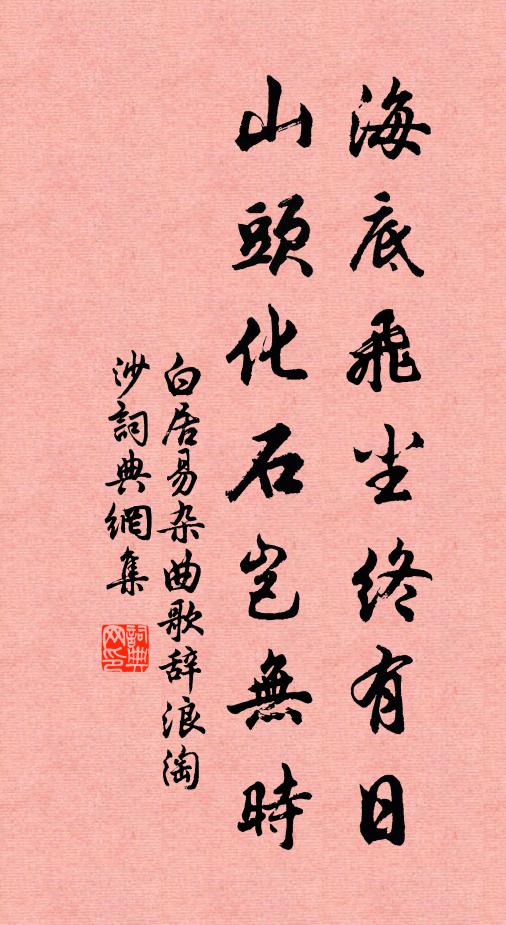 海底飛尘終有日
山頭化石岂無時
白居易杂曲歌辞浪淘
沙詞典網集
詞典
网印